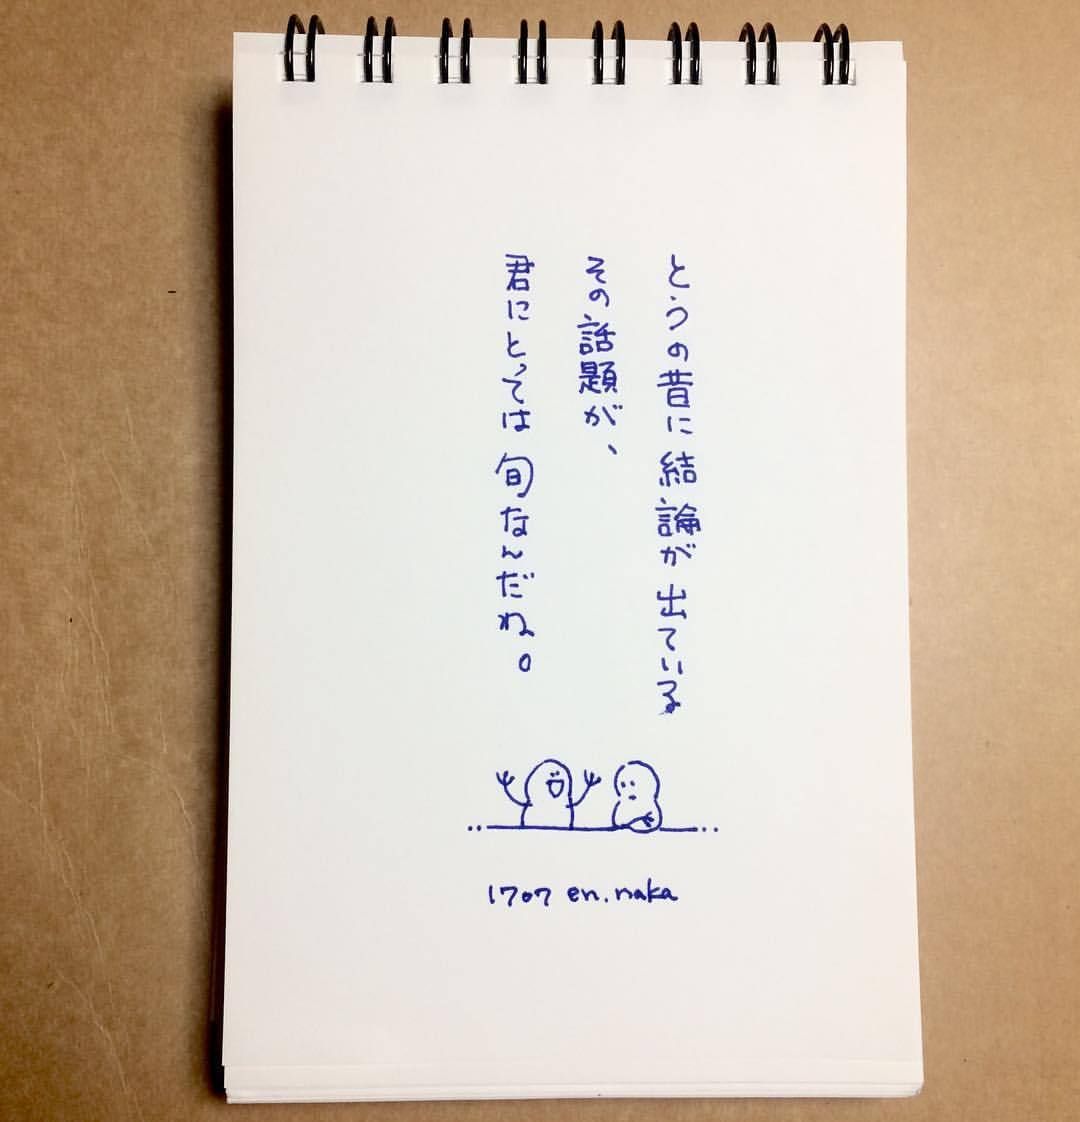 とうの昔に結論が出ている
その話題が、
君にとっては旬なんだね。
1707 en.naka